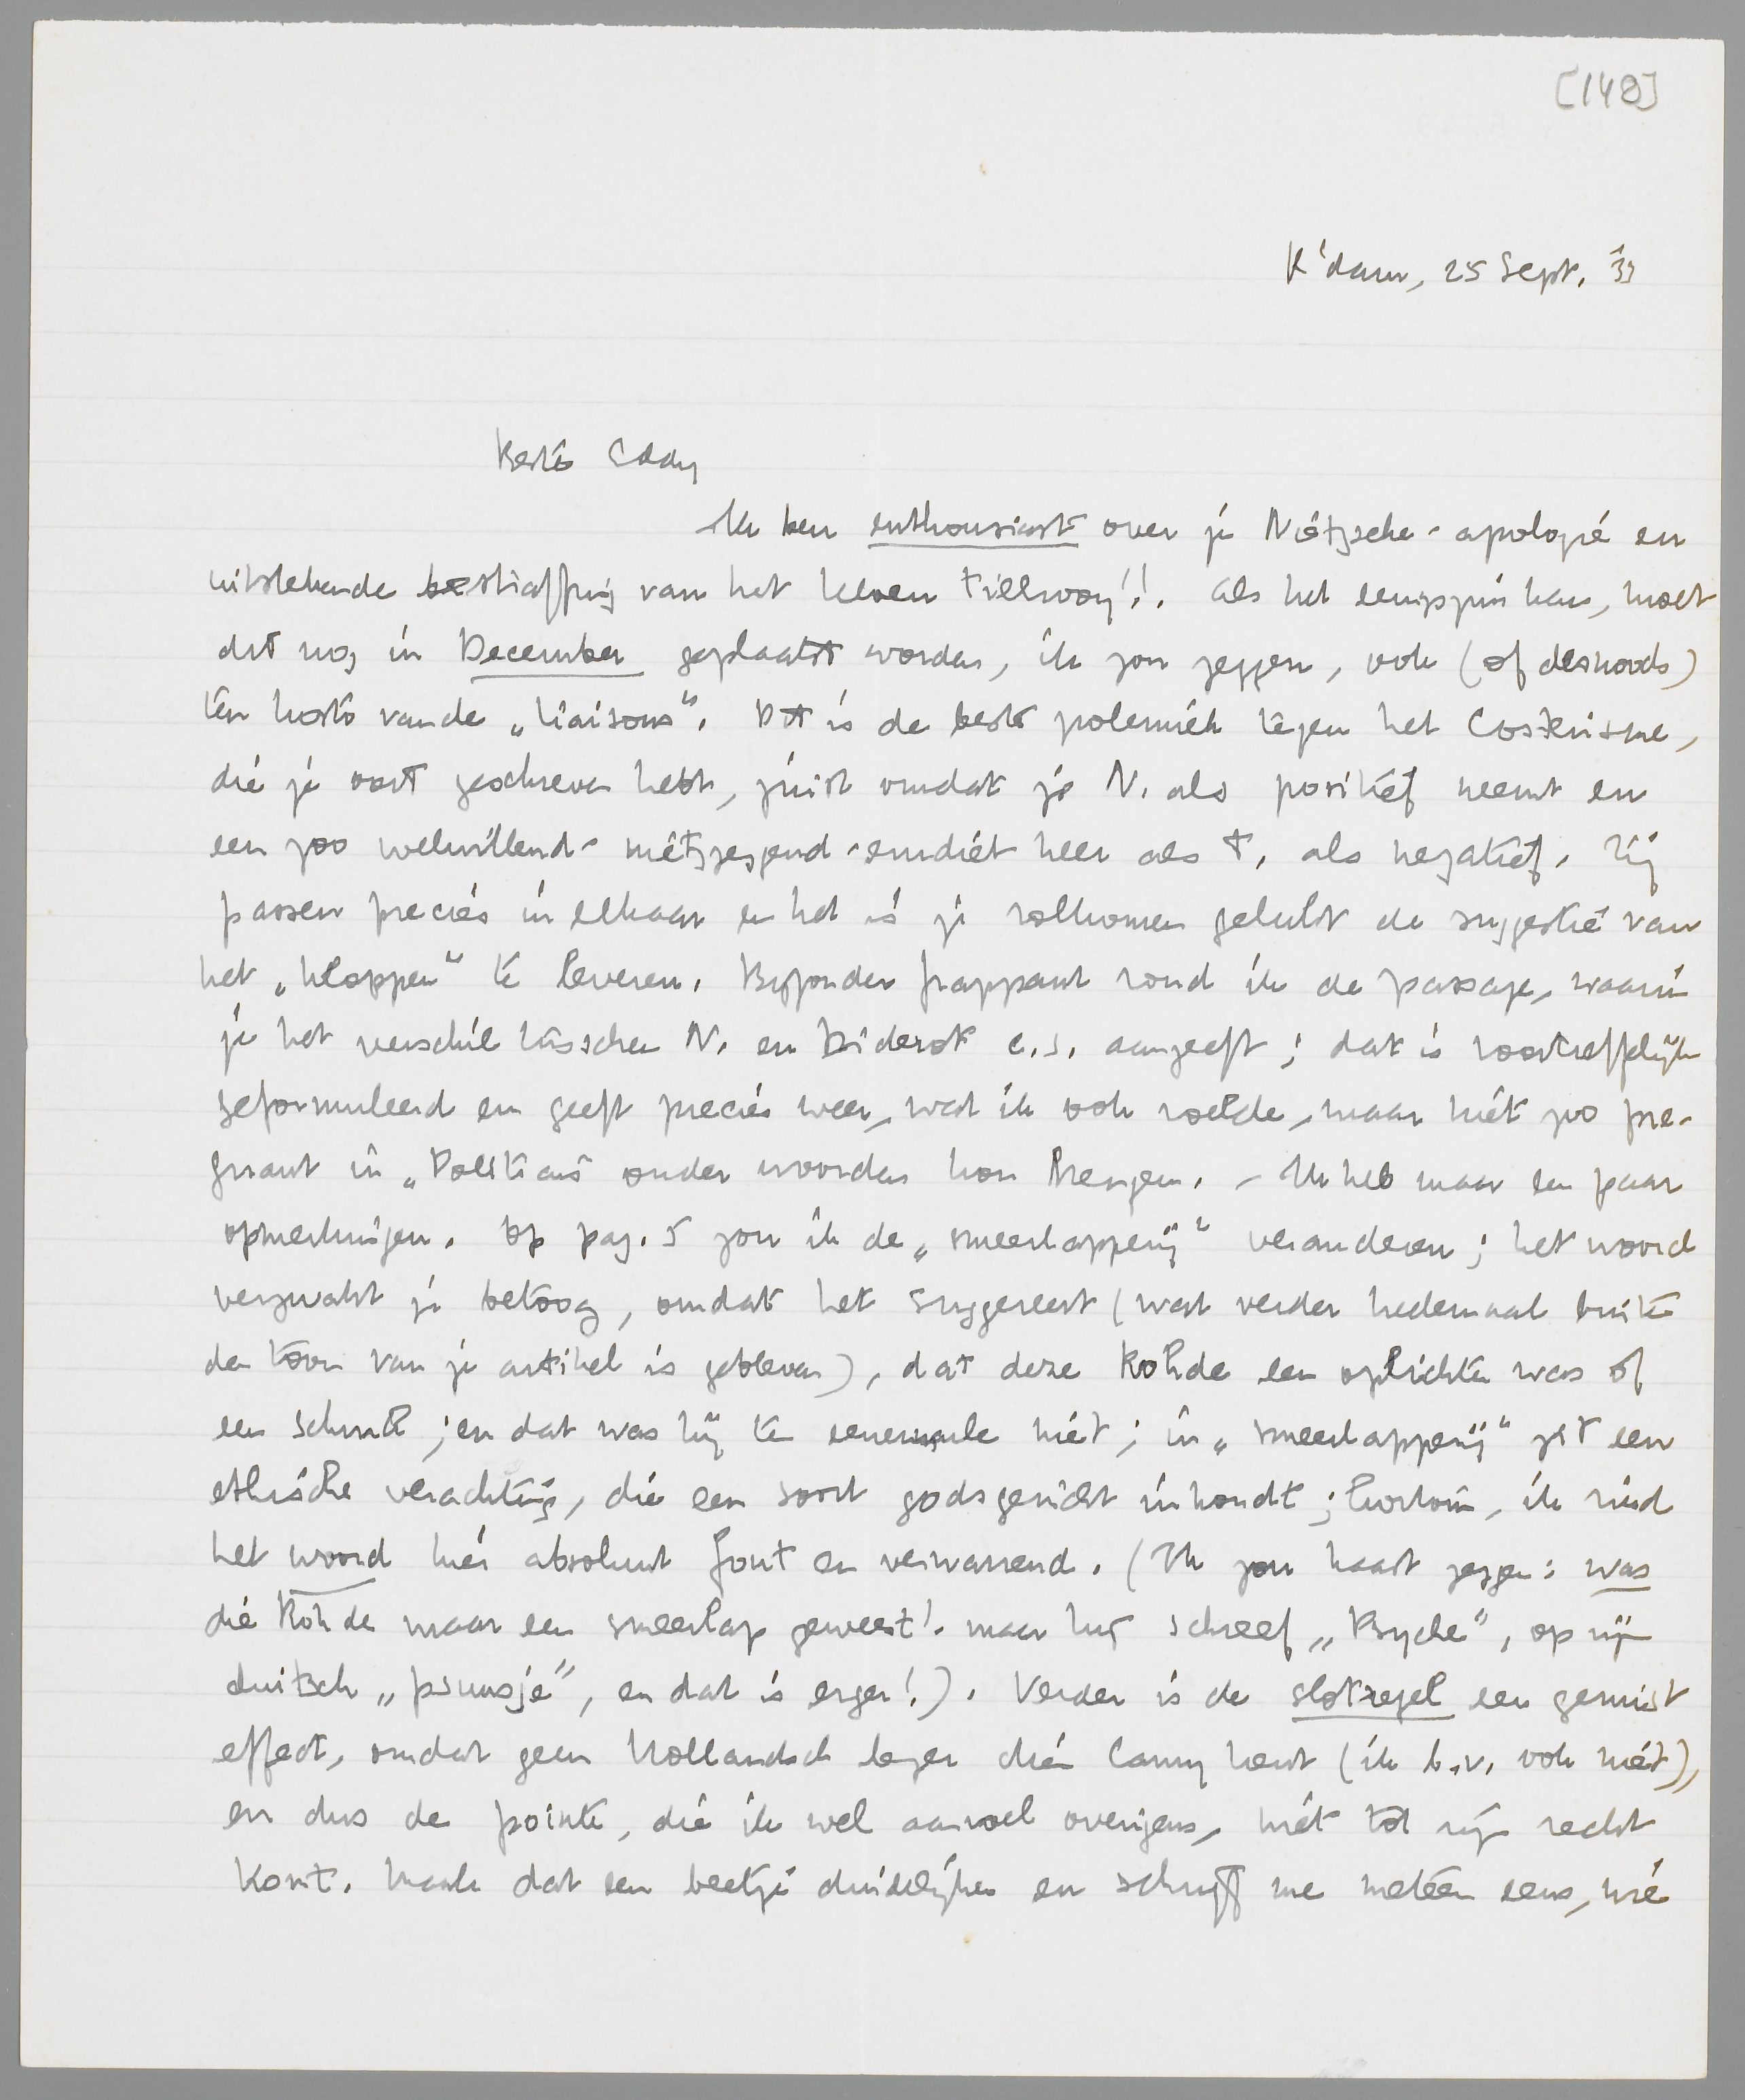 [148]
R'dam, 25 Sept. '33
Beste Eddy
Ik ben enthousiast over je Nietzsche-apologie en
uitstekende bestraffing van het leven Tielrooy!! Als het eenigszins kan, moet
dit nog in December geplaatst worden, ik zou zeggen, ook (of desnoods)
ten koste van de „Liaisons". Dit is de beste polemiek tegen het Costerisme,
die je ooit geschreven hebt, juist omdat je N. als positief neemt en
een zoo welwillend-nietszeggend-erudiet heer als T. als negatief. Zij
passen precies in elkaar en het is je volkomen gelukt de suggestie van
het „kloppen" te leveren. Bijzonder frappant vond ik de passage, waarin
je het verschil tusschen N. en Diderot c.s. aangeeft; dat is voortreffelijk
geformuleerd en geeft precies weer, wat ik ook voelde, maar niet zoo pre-
gnant in „Politicus" onder woorden kon brengen. – Ik heb maar een paar
opmerkingen. Op pag. 5 zou ik de „smeerlapperij" veranderen; het woord
verzwakt je betoog, omdat het suggereert (wat verder heelemaal buiten
den toon van je artikel is gebleven), dat deze Rohde een oplichter was of
een schurk; en dat was hij ten eenenmale niet; in „smeerlapperij" zit een
ethische verachting, die een soort godsgericht inhoudt; kortom, ik vind
het woord hier absoluut fout en verwarrend. (Ik zou haast zeggen: was
die Rohde maar een smeerlap geweest! maar hij schreef „Psyche", op zijn
duitsch „psuusje", en dat is erger!). Verder is de slotregel een gemist
effect, omdat geen Hollandsch lezer dien Camy kent (ik b.v. ook niet),
en dus de pointe, die ik wel aanvoel overigens, niet tot zijn recht
komt. Maak dat een beetje duidelijker en schrijf me meteen eens, wie